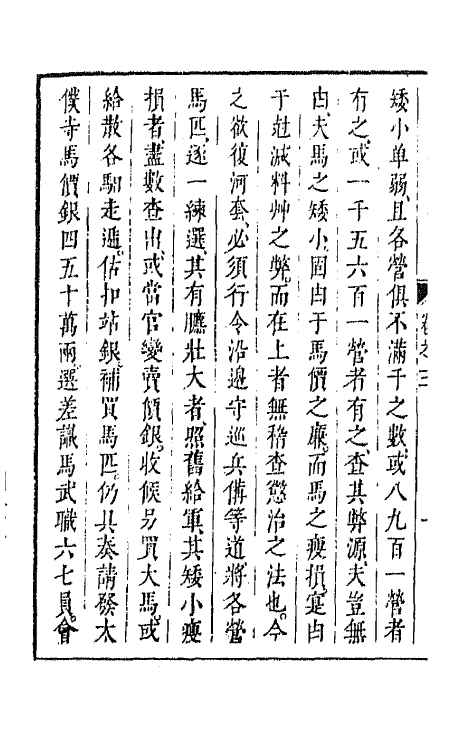 矮小单弱、且各營俱不滿千之數、或八九百一營者
有之、或一千五六百一營者有之、查其弊源、夫豈無
由、夫馬之矮小、固由于馬價之廉、而馬之瘦損、寔由
于尅減料艸之弊。而在上者無稽查懲治之法也。今
之欲復河套、必須行令沿邊守巡兵備等道、將各營
馬匹、逐一練選其有臕壯大者、照舊給軍、其矮小瘦
損者、盡數查出、或當官變賣價銀。收候另買大馬。或
給散各馹走遞。估扣站銀。補買馬匹。仍具奏請發太
僕寺馬價銀四五十萬兩。選差識馬武職六七員。會
卷之二